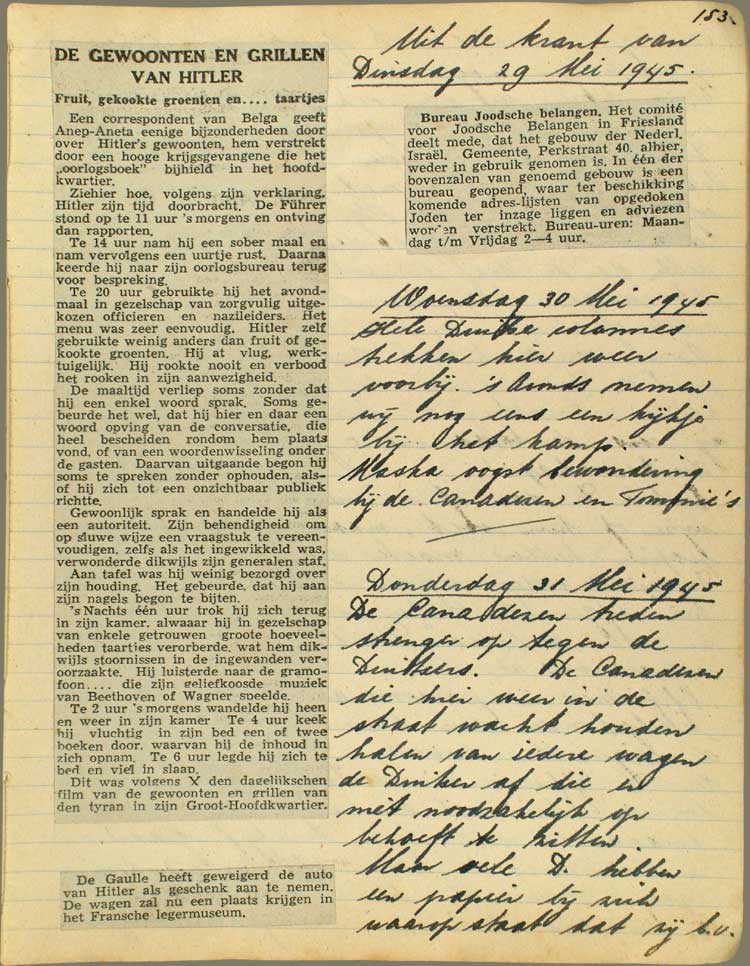 153.
DE GEWOONTEN EN GRILLEN
VAN HITLER
Fruit, gekookte groenten en.... taartjes
Een correspondent van Belga geeft
Anep-Aneta eenige bijzonderheden door
over Hitler's gewoonten, hem verstrekt
door een hooge krijgsgevangene die het
„oorlogsboek" bijhield in het hoofd-
kwartier.
Ziehier hoe, volgens zijn verklaring,
Hitler zijn tijd doorbracht. De Führer
stond op te 11 uur 's morgens en ontving
dan rapporten.
Te 14 uur nam hij een sober maal en
nam vervolgens een uurtje rust. Daarna
keerde hij naar zijn oorlogsbureau terug
voor bespreking.
Te 20 uur gebruikte hij het avond-
maal in gezelschap van zorgvulig uitge-
kozen officieren en nazileiders. Het
menu was zeer eenvoudig. Hitler zelf
gebruikte weinig anders dan fruit of ge-
kookte groenten. Hij at vlug, werk-
tuigelijk. Hij rookte nooit en verbood
het rooken in zijn aanwezigheid.
De maaltijd verliep soms zonder dat
hij een enkel woord sprak. Soms ge-
beurde het wel, dat hij hier en daar een
woord opving van de conversatie, die
heel bescheiden rondom hem plaats
vond, of van een woordenwisseling onder
de gasten. Daarvan uitgaande begon hij
soms te spreken zonder ophouden, als-
of hij zich tot een onzichtbaar publiek
richtte.
Gewoonlijk sprak en handelde hij als
een autoriteit. Zijn behendigheid om
op sluwe wijze een vraagstuk te vereen-
voudigen, zelfs als het ingewikkeld was,
verwonderde dikwijls zijn generalen staf.
Aan tafel was hij weinig bezorgd over
zijn houding. Het gebeurde, dat hij aan
zijn nagels begon te bijten.
's Nachts één uur trok hij zich terug
in zijn kamer, alwaar hij in gezelschap
van enkele getrouwen groote hoeveel-
heden taartjes verorberde, wat hem dik-
wijls stoornissen in de ingewanden ver-
oorzaakte. Hij luisterde naar de gramo-
foon.... die zijn geliefkoosde muziek
van Beethoven of Wagner speelde.
Te 2 uur 's morgens wandelde hij heen
en weer in zijn kamer Te 4 uur keek
hij vluchtig in zijn bed een of twee
boeken door, waarvan hij de inhoud in
zich opnam. Te 6 uur legde hij zich te
bed en viel in slaap.
Dit was volgens X den dagelijkschen
film van de gewoonten en grillen van
den tyran in zijn Groot-Hoofdkwartier.
De Gaulle heeft geweigerd de auto
van Hitler als geschenk aan te nemen.
De wagen zal nu een plaats krijgen in
het Fransche legermuseum.
Uit de krant van
Dinsdag 29 Mei 1945.
Bureau Joodsche belangen. Het comité
voor Joodsche Belangen in Friesland
deelt mede, dat het gebouw der Nederl.
Israël. Gemeente, Perkstraat 40, alhier,
weder in gebruik genomen is. In één der
bovenzalen van genoemd gebouw is een
bureau geopend, waar ter beschikking
komende adres-lijsten van opgedoken
Joden ter inzage liggen en adviezen
worden verstrekt. Bureau-uren: Maan-
dag t/m Vrijdag 2—4 uur.
Woensdag 30 Mei 1945
Hele Duitse colonnes
trekken hier weer
voorbij. 's Avonds nemen
wij nog eens een kijkje
bij het kamp.
Mascha oogst bewondering
bij de Canadezen en Tommie's
Donderdag 31 Mei 1945
De Canadezen treden
strenger op tegen de
Duitsers. De Canadezen
die hier weer in de
straat wacht houden
halen van iedere wagen
de Duitser af die er
niet noodzakelijk op
behoeft te zitten.
Maar vele D. hebben
een papier bij zich
waarop staat dat zij b.v.